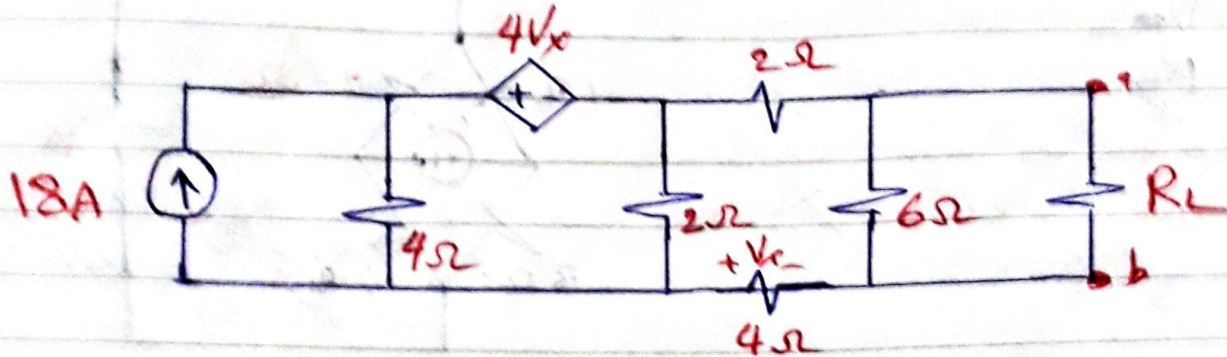 4Vx
2Ω
+ -
18A
4Ω
2Ω
6Ω
RL
+ Vx -
4Ω
b